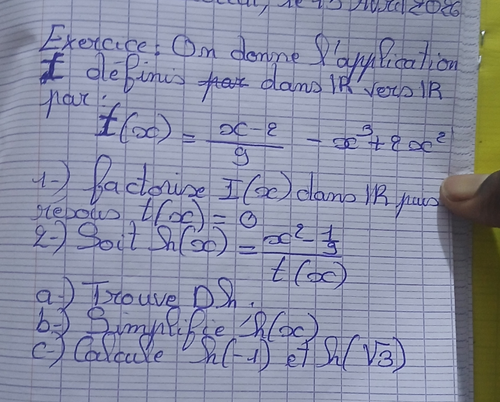 Exercice: On donne l'application
f définis dans IR vers IR
par:
f(x) = (x-2)/9 - x³ + 2x²
1-) factorise f(x) dans IR puis
résous f(x) = 0
2-) Soit h(x) = (x² - 1/9)/f(x)
a-) Trouve Dh.
b-) Simplifie h(x)
c-) Calcule h(-1) et h(√3)